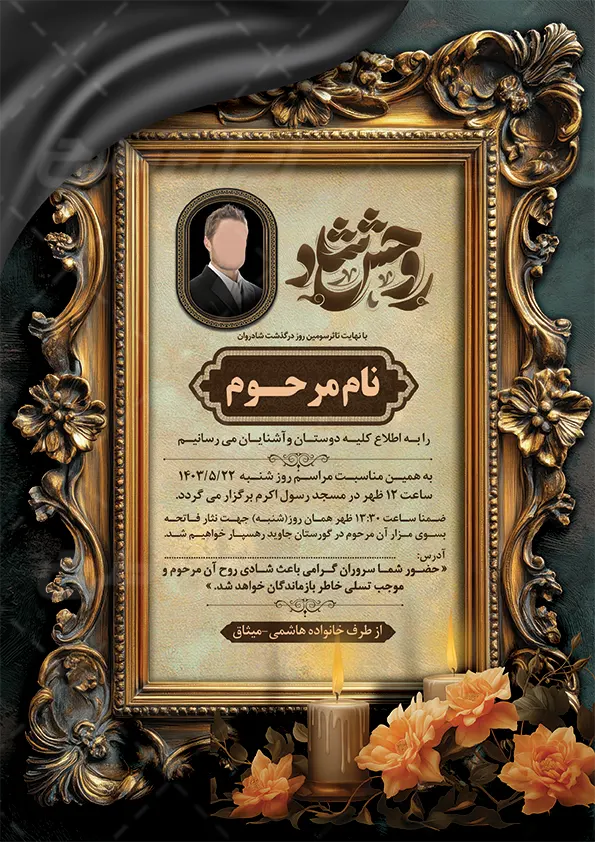 روحش شاد
با نهایت تاثر سومین روز درگذشت شادروان
نام مرحوم
را به اطلاع کلیه دوستان و آشنایان می رسانیم
به همین مناسبت مراسم روز شنبه ۱۴۰۳/۵/۲۲
ساعت ۱۲ ظهر در مسجد رسول اکرم برگزار می گردد.
ضمنا ساعت ۱۳:۳۰ ظهر همان روز(شنبه) جهت نثار فاتحه
بسوی مزار آن مرحوم در گورستان جاوید رهسپار خواهیم شد.
آدرس:
« حضور شما سروران گرامی باعث شادی روح آن مرحوم و
موجب تسلی خاطر بازماندگان خواهد شد. »
از طرف خانواده هاشمی-میثاق